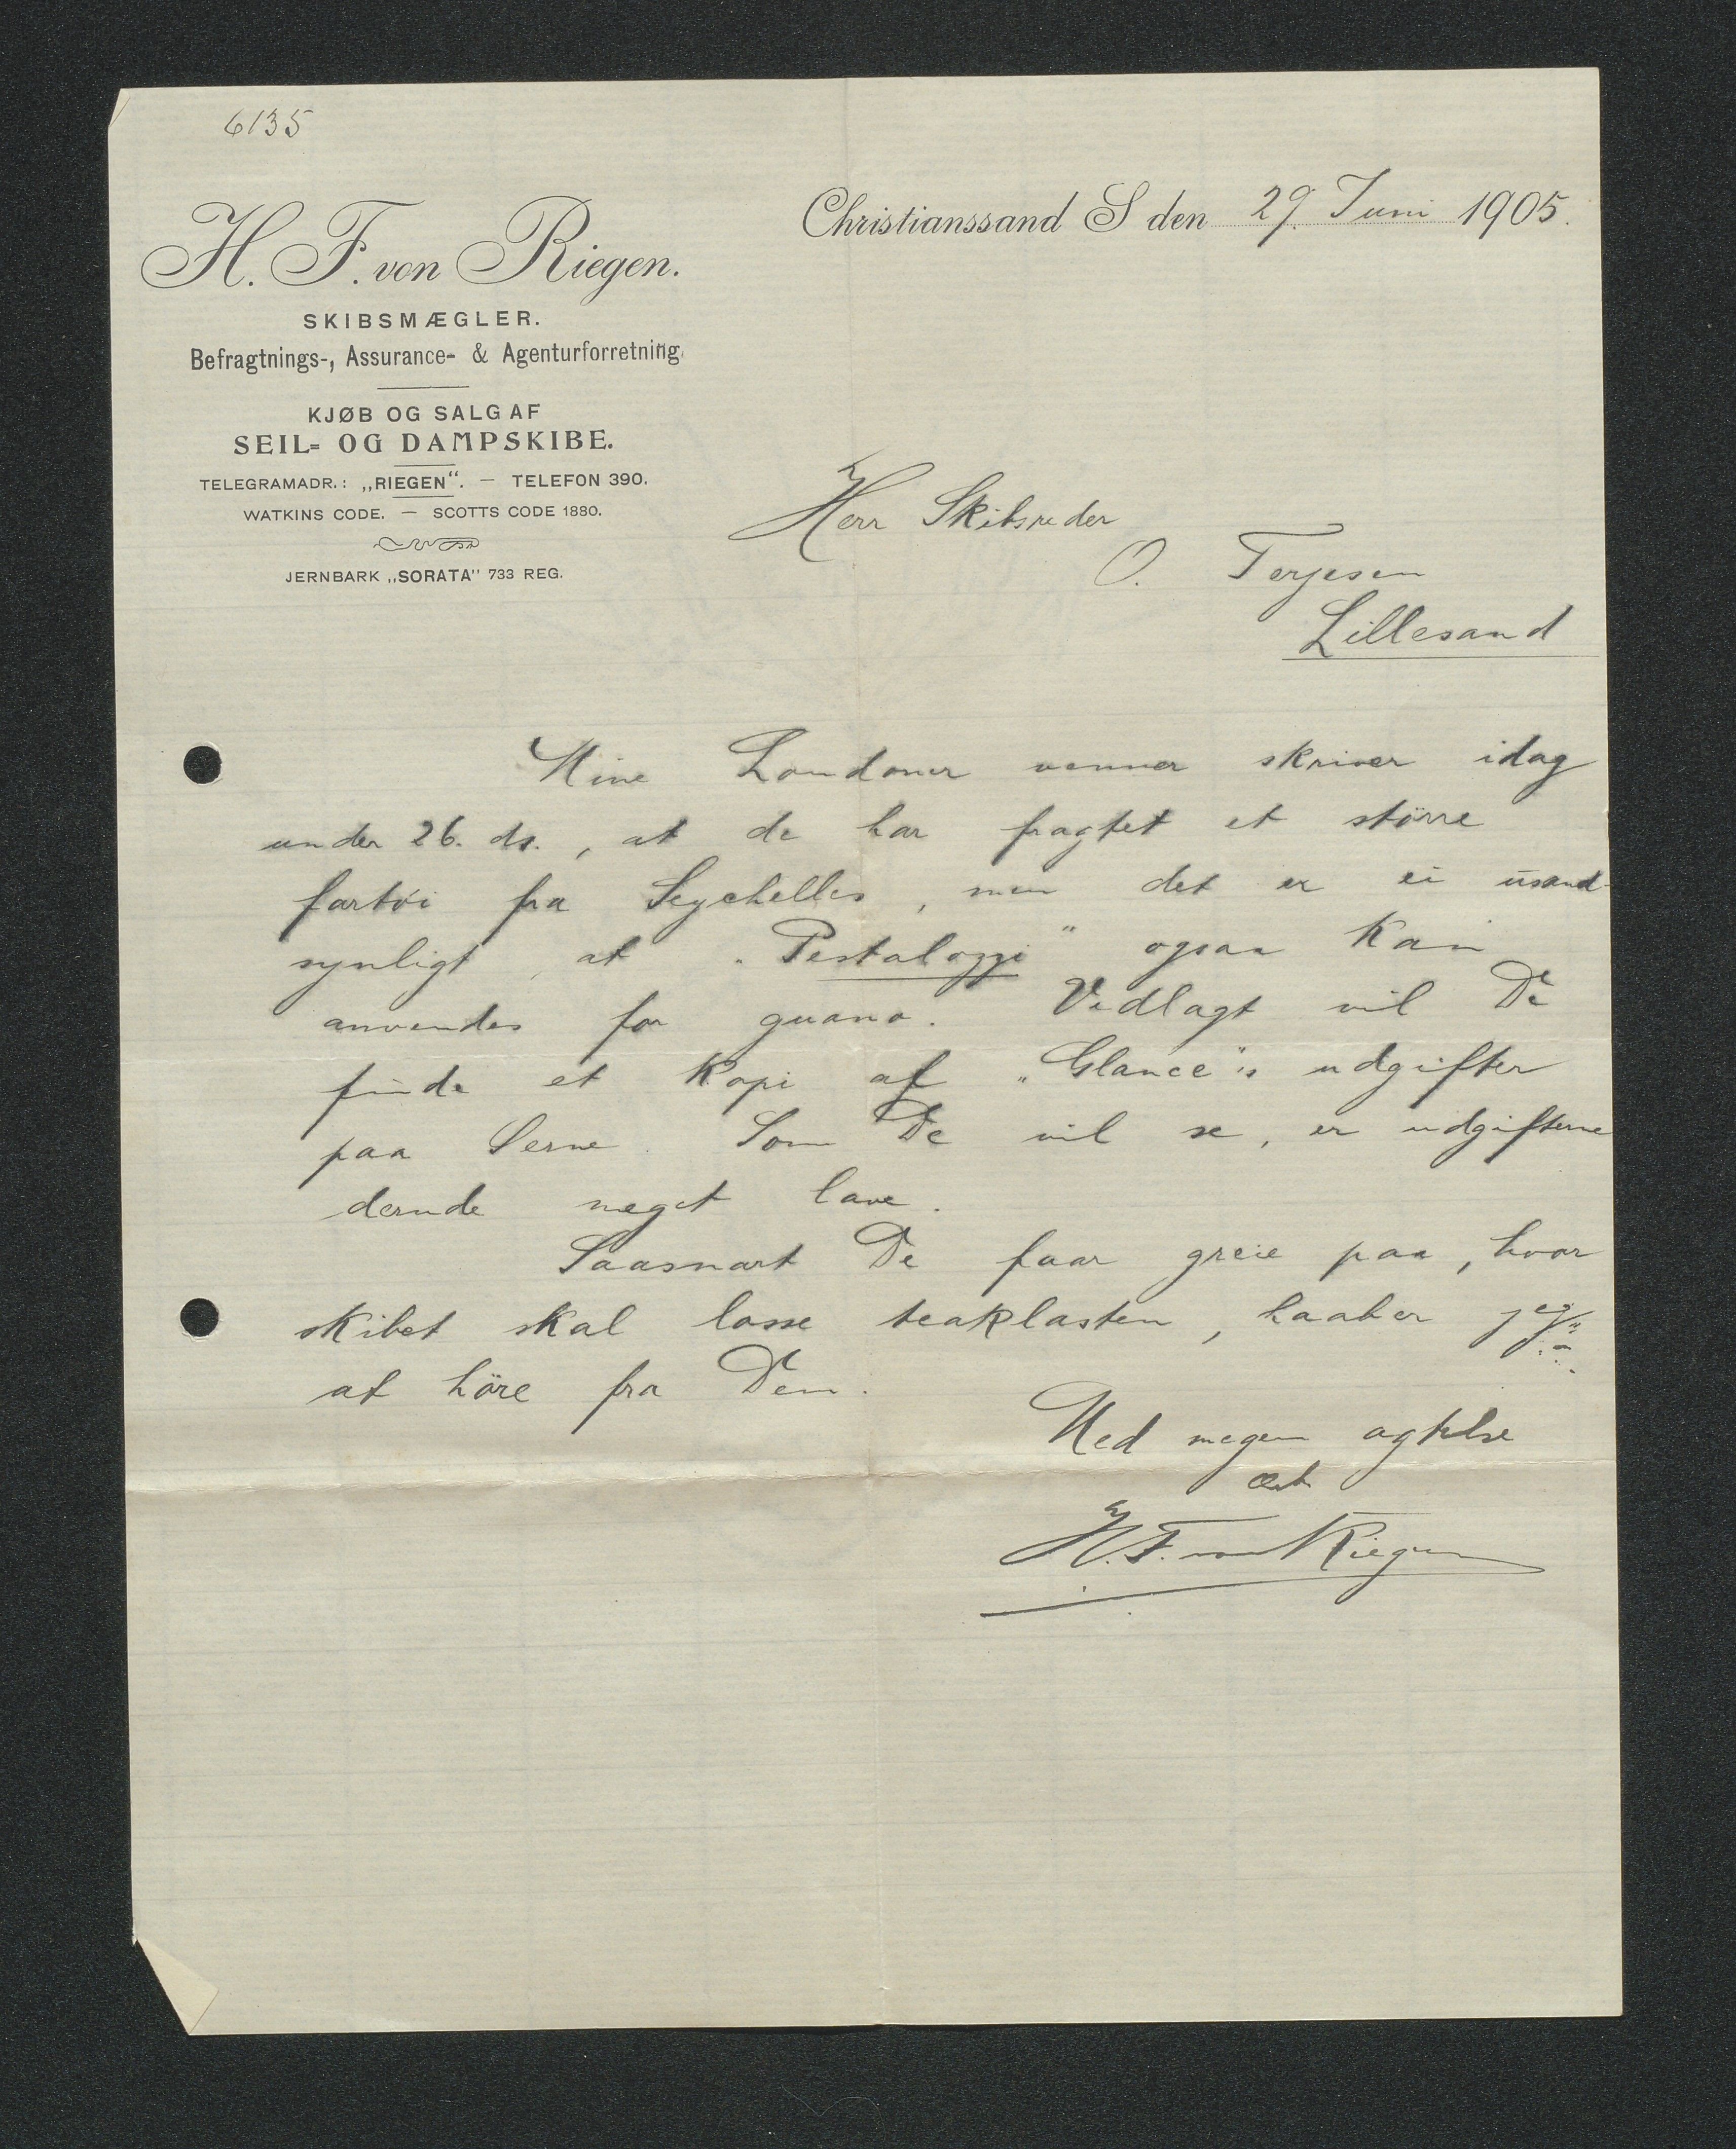 6135
H. F. von Riegen.
SKIBSMÆGLER.
Befragtnings-, Assurance- & Agenturforretning.
KJØB OG SALG AF
SEIL- OG DAMPSKIBE.
TELEGRAMADR.: „RIEGEN“. — TELEFON 390.
WATKINS CODE. — SCOTTS CODE 1880.
JERNBARK „SORATA“ 733 REG.
Christianssand S den 29. Juni 1905.
Herr Skibsreder
O. Terjesen
Lillesand
Mine Londoner venner skriver idag
under 26. ds., at de har fragtet et större
fartöi fra Seychelles, men det er ei usand-
synligt, at "Pestalozzi" ogsaa kan
anvendes for guano. Vedlagt vil De
finde et kopi af "Glance"'s udgifter
paa Serne. Som De vil se, er udgifterne
derude meget lave.
Saasnart De faar greie paa, hvor
skibet skal losse teaklasten, haaber jeg
at höre fra Dem.
Med megen agtelse
H. F. von Riegen